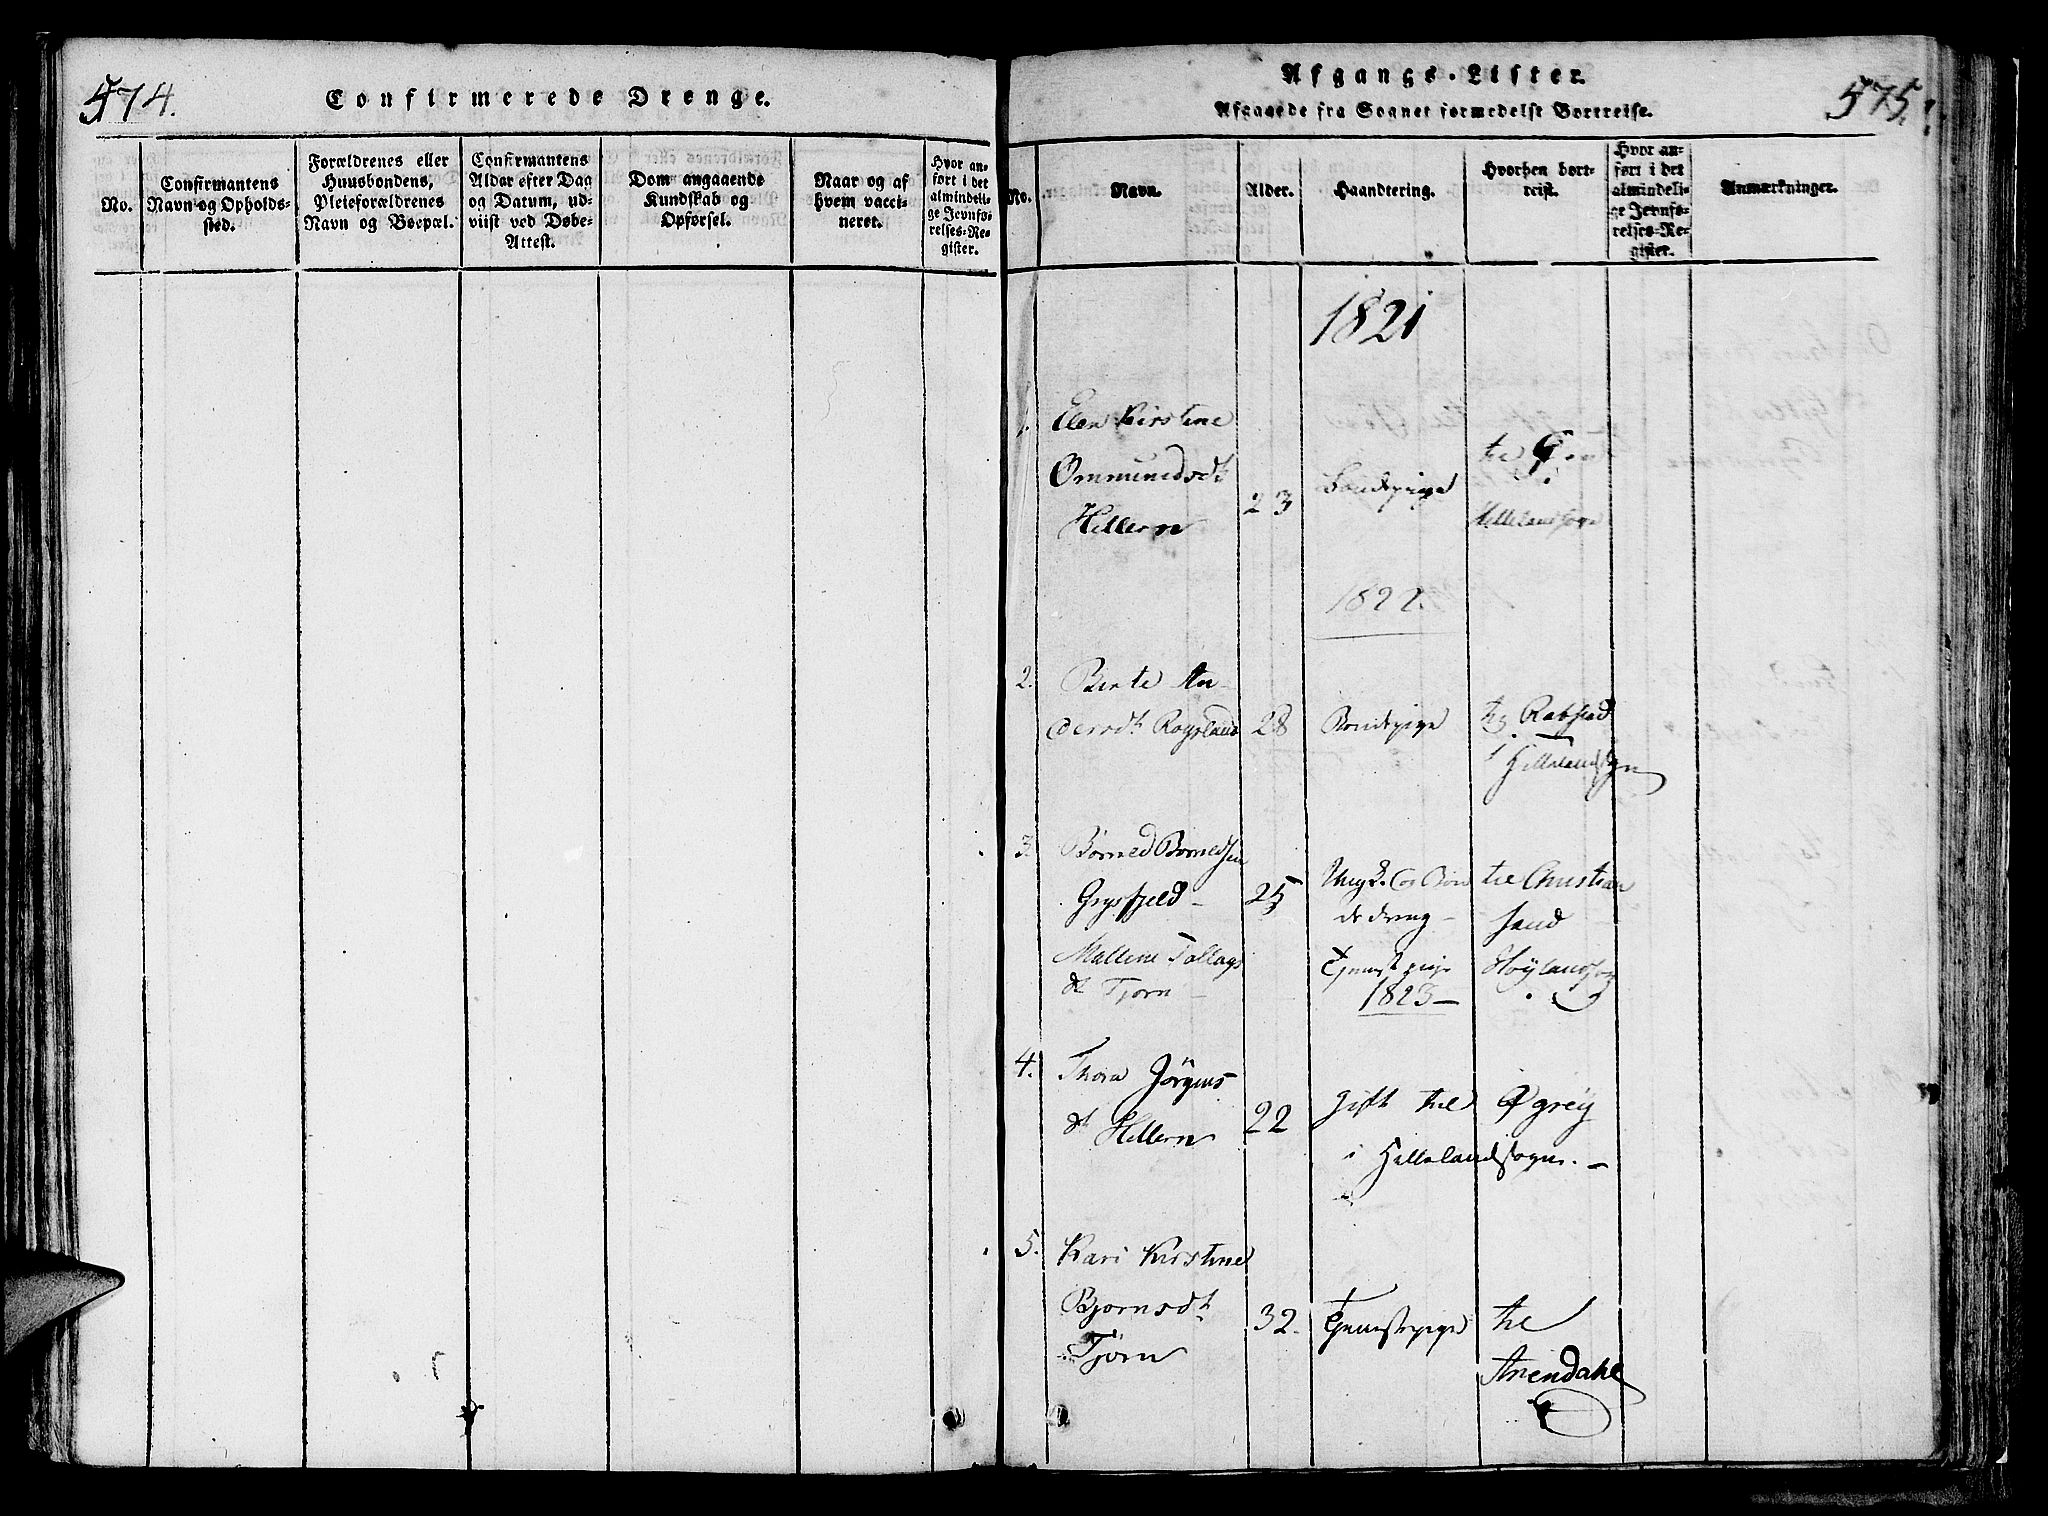 574.
Confirmerede Drenge.
No.
Confirmantens
Navn og Opholds-
sted.
Forældrenes eller
Huusbondens,
Pleieforældrenes
Navn og Boepæl.
Confirmantens
Alder efter Dag
og Datum, ud-
viist ved Døbe-
Attest.
Dom angaaende
Kundskab og
Opførsel.
Naar og af
hvem vacci-
neret.
Hvor an-
ført i det
almindeli-
ge Jevnfø-
relses-Re-
gister.
Afgangs-Lister.
575.
Afgaaede fra Sognet formedelst Bortreise.
No.
Navn.
Alder.
Haandtering.
Hvorhen bort-
reist.
Hvor an-
ført i det
almindeli-
ge Jevnfø-
relses-Re-
gister.
Anmærkninger.
1821
1. Elen Kirstine
Ommundsdt
Hellern
23
Bondepige
til
Hellelandsogn
1822.
2. Bente An-
dersdt Rogsland
28
Bondepige
Rabstad
i Hellelandsogn
3. Børned Børnedsen
Grysfjeld -
25
Ungk. og Bon
de dreng -
til Christian
sand
Mallene Tollags
dt Tjorn -
Tjenestpige
Høylandsogn
1823 -
4. Thora Jörgens-
dt Hellern
22
gift til Øgrey
i Hellelandsogn. -
5. Kari Kirstine
Bjornsdt
Tjörn
32.
Tjenestepige
til
Arendahl